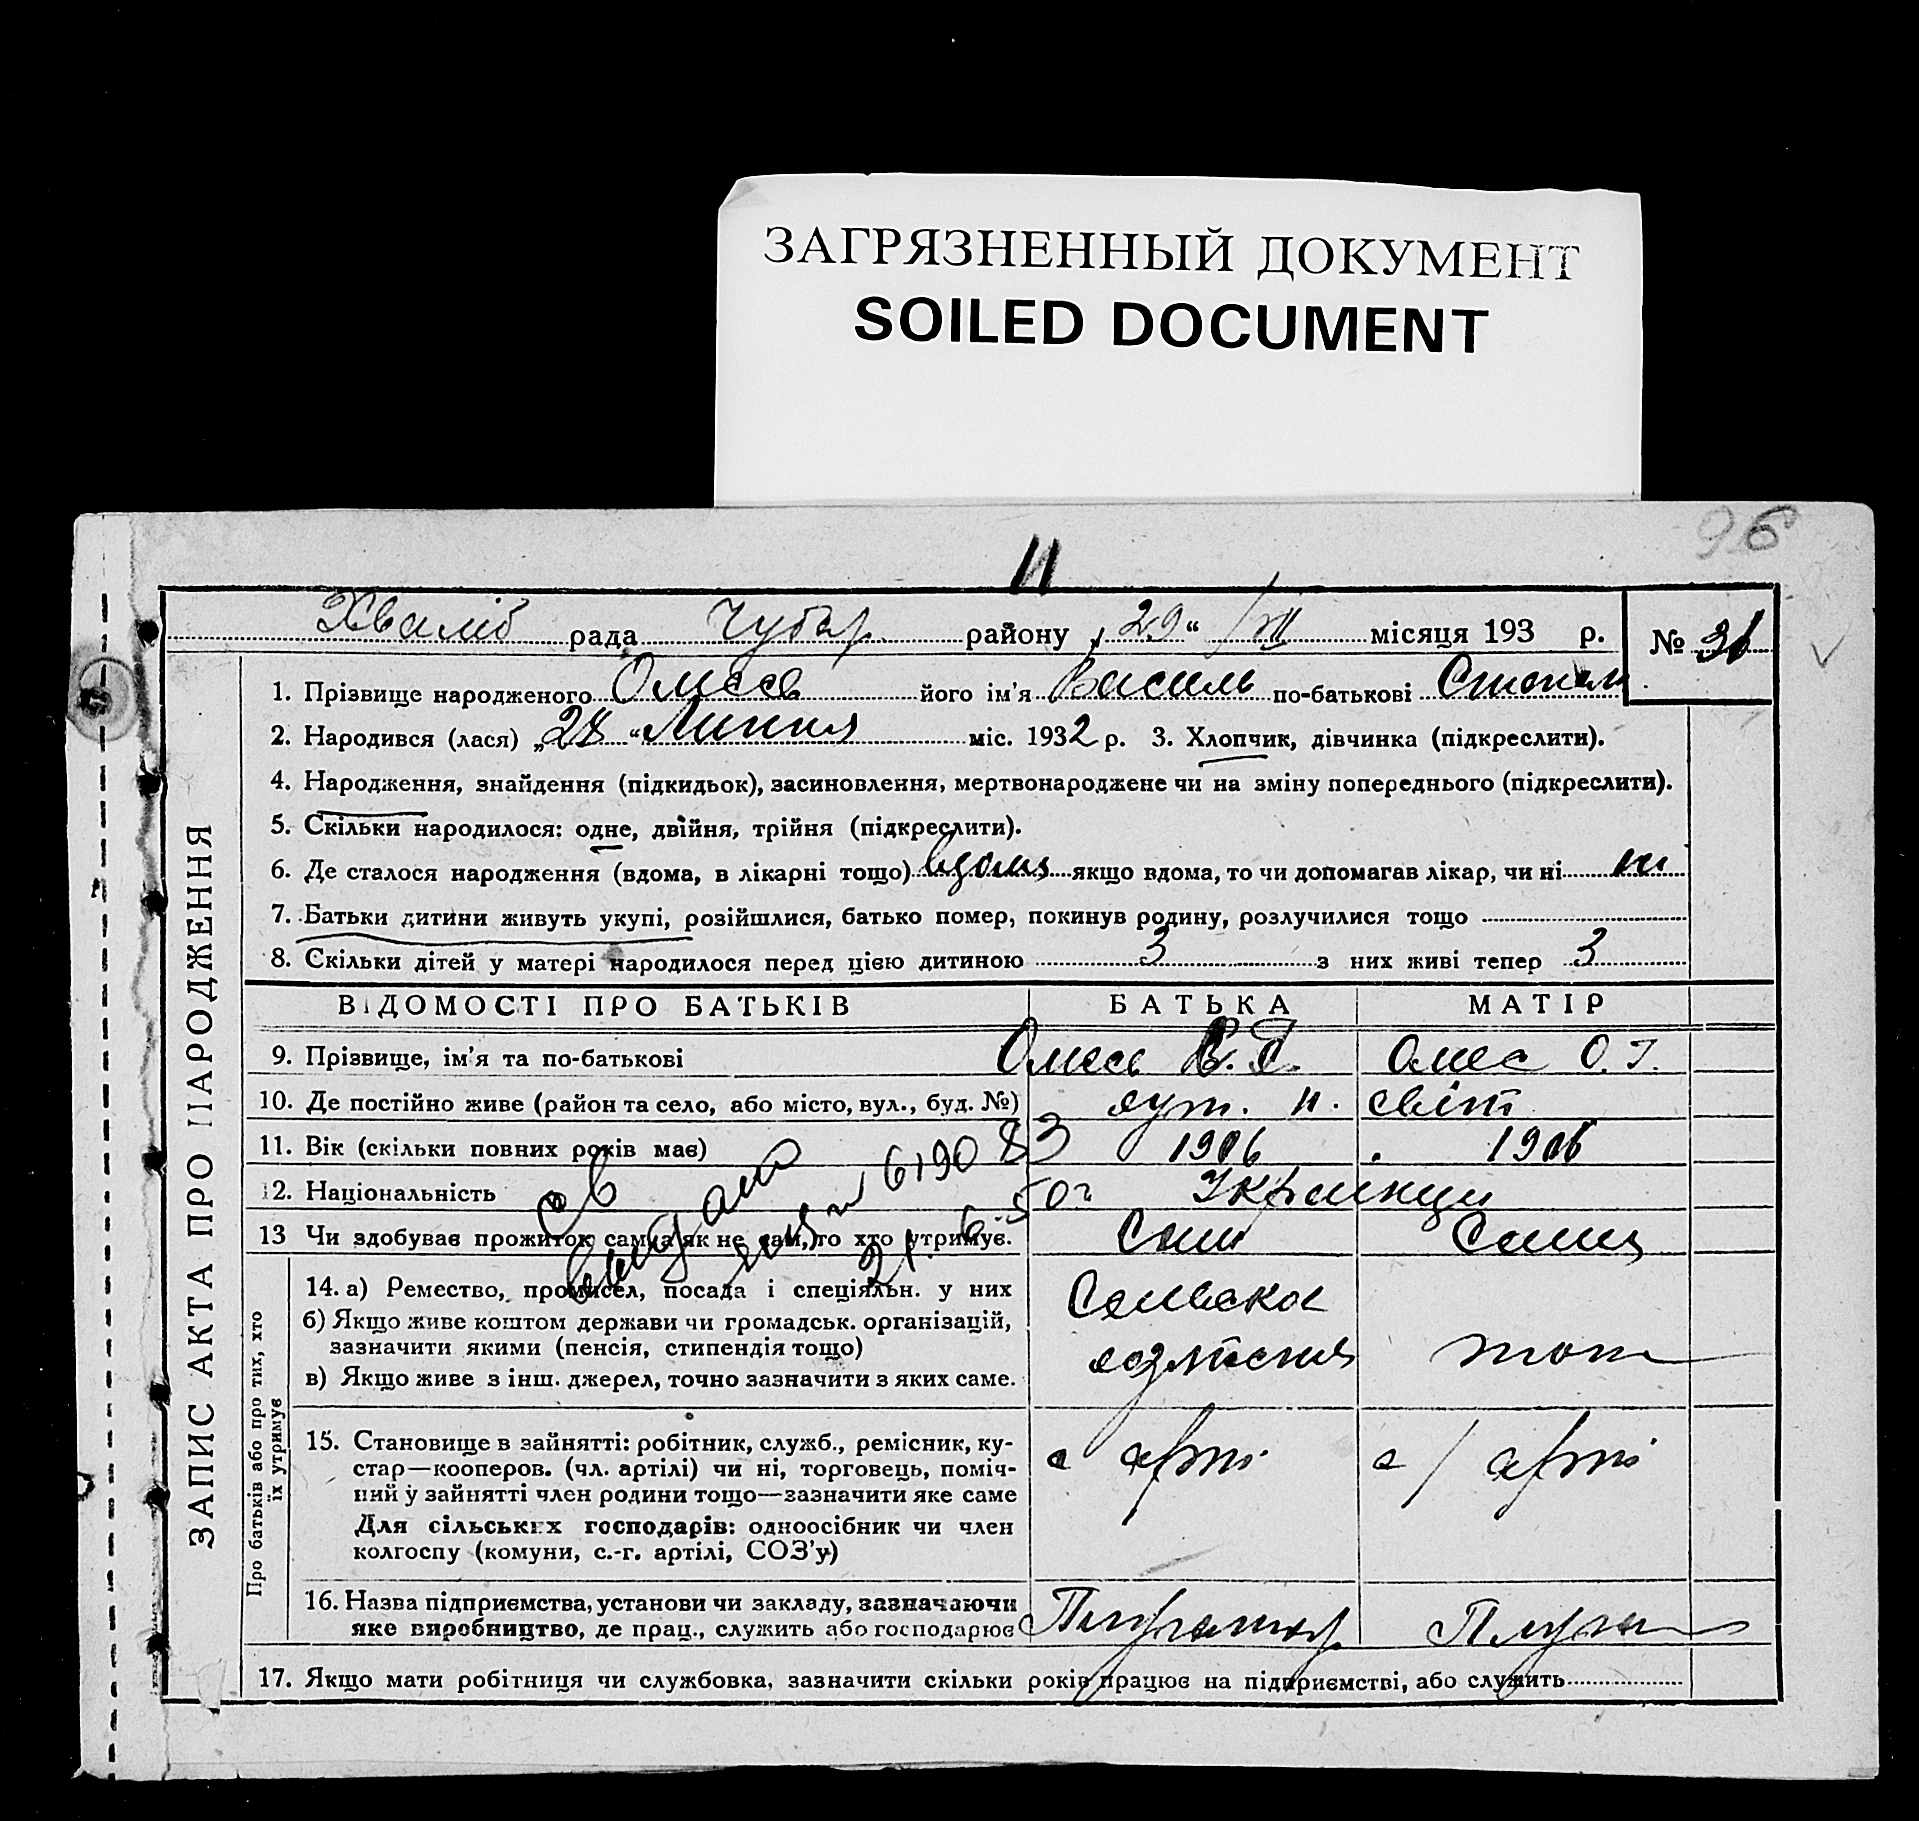 ЗАГРЯЗНЕННЫЙ ДОКУМЕНТ
SOILED DOCUMENT
96
11
рада Чубар району „29“ місяця 193 р. № 31
1. Прізвище народженого його ім'я Василь по-батькові
2. Народився (лася) „28“ Липня міс. 1932 р. 3. Хлопчик, дівчинка (підкреслити).
4. Народження, знайдення (підкидьок), засиновлення, мертвонароджене чи на зміну попереднього (підкреслити).
5. Скільки народилося: одне, двійня, трійня (підкреслити).
6. Де сталося народження (вдома, в лікарні тощо) вдома якщо вдома, то чи допомагав лікар, чи ні ні
7. Батьки дитини живуть укупі, розійшлися, батько помер, покинув родину, розлучилися тощо
8. Скільки дітей у матері народилося перед цією дитиною 3 з них живі тепер 3
ВІДОМОСТІ ПРО БАТЬКІВ БАТЬКА МАТІР
9. Прізвище, ім'я та по-батькові О.Г.
10. Де постійно живе (район та село, або місто, вул., буд. №) хут. Н. світ
11. Вік (скільки повних років має) 1906 1906
12. Національність Українци
13 Чи здобуває прожиток сам, а як не сам, то хто утримує.
св
видано
21.6.50г
14. а) Ремество, промисел, посада і спеціяльн. у них
б) Якщо живе коштом держави чи громадськ. організацій,
зазначити якими (пенсія, стипендія тощо)
в) Якщо живе з інш. джерел, точно зазначити з яких саме.
15. Становище в зайнятті: робітник, служб., ремісник, ку-
стар—кооперов. (чл. артілі) чи ні, торговець, поміч-
ний у зайнятті член родини тощо—зазначити яке саме
Для сільських господарів: одноосібник чи член
колгоспу (комуни, с.-г. артілі, СОЗ'у)
с арті с/арті
16. Назва підприємства, установи чи закладу, зазначаючи
яке виробництво, де прац., служить або господарює
17. Якщо мати робітниця чи службовка, зазначити скільки років працює на підприємстві, або служить
ЗАПИС АКТА ПРО НАРОДЖЕННЯ
Про батьків або про тих, хто
їх утримує